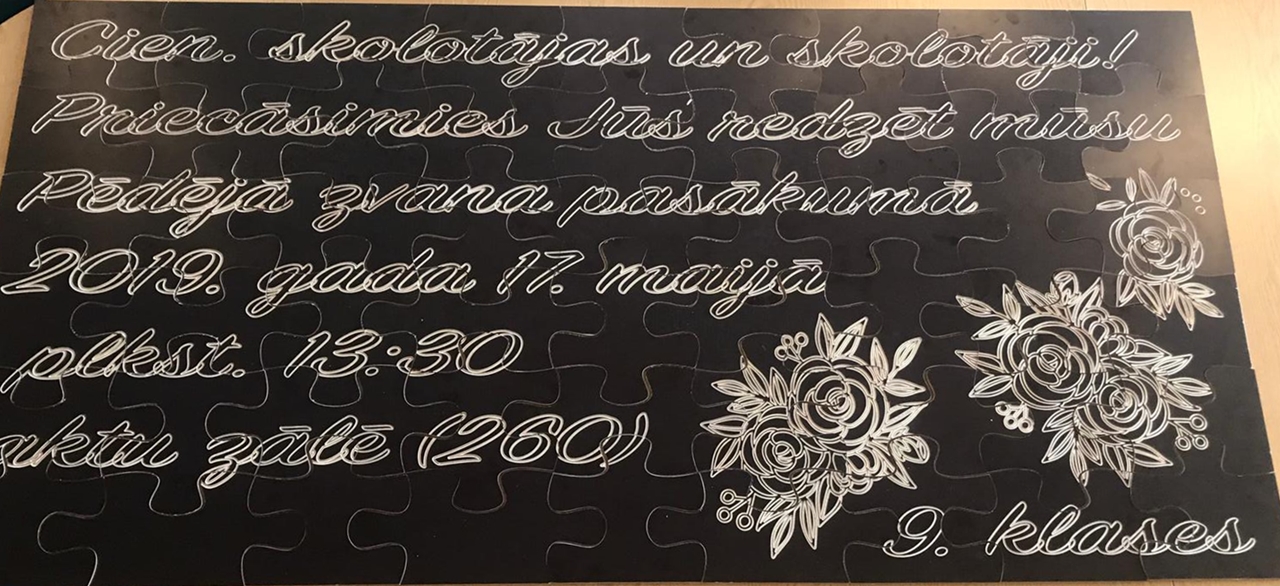 Cien. skolotājas un skolotāji!
Priecāsimies Jūs redzēt mūsu
Pēdējā zvana pasākumā
2019. gada 17. maijā
plkst. 13:30
aktu zālē (260)
9. klases